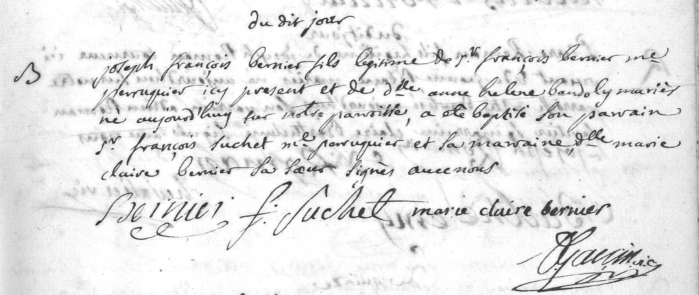 du dit jour
B
joseph françois bernier fils legitime de sr françois bernier me
perruquier icy present et de dlle anne helene bandoly mariés
né aujourdhuy sur notre parroisse, a eté baptisé son parrain
sr françois Suchet me perruquier et sa marraine dlle marie
claire bernier sa sœur signés avec nous
Bernier f. Suchet marie claire bernier